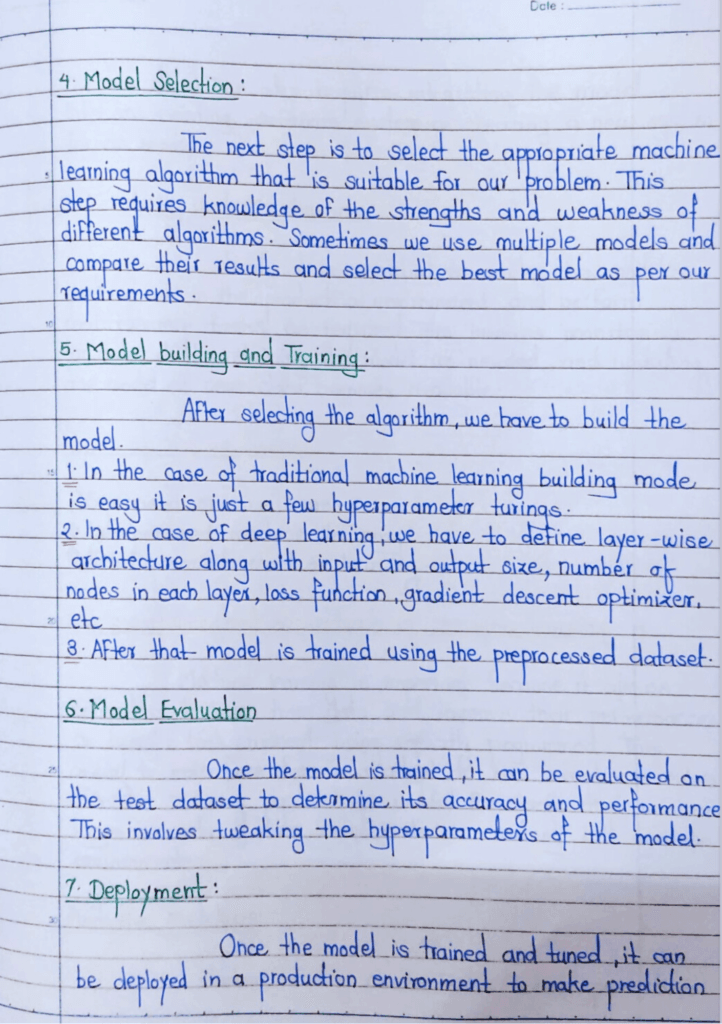 Date :
4. Model Selection :
The next step is to select the appropriate machine
learning algorithm that is suitable for our problem. This
step requires knowledge of the strengths and weakness of
different algorithms. Sometimes we use multiple models and
compare their results and select the best model as per our
requirements.
10
5. Model building and Training :
After selecting the algorithm, we have to build the
model.
15 1. In the case of traditional machine learning building mode
is easy it is just a few hyperparameter turings.
2. In the case of deep learning, we have to define layer-wise
architecture along with input and output size, number of
nodes in each layer, loss function, gradient descent optimizer,
20 etc
3. After that model is trained using the preprocessed dataset.
6. Model Evaluation
25 Once the model is trained, it can be evaluated on
the test dataset to determine its accuracy and performance
This involves tweaking the hyperparameters of the model.
7. Deployment :
30
Once the model is trained and tuned, it can
be deployed in a production environment to make prediction